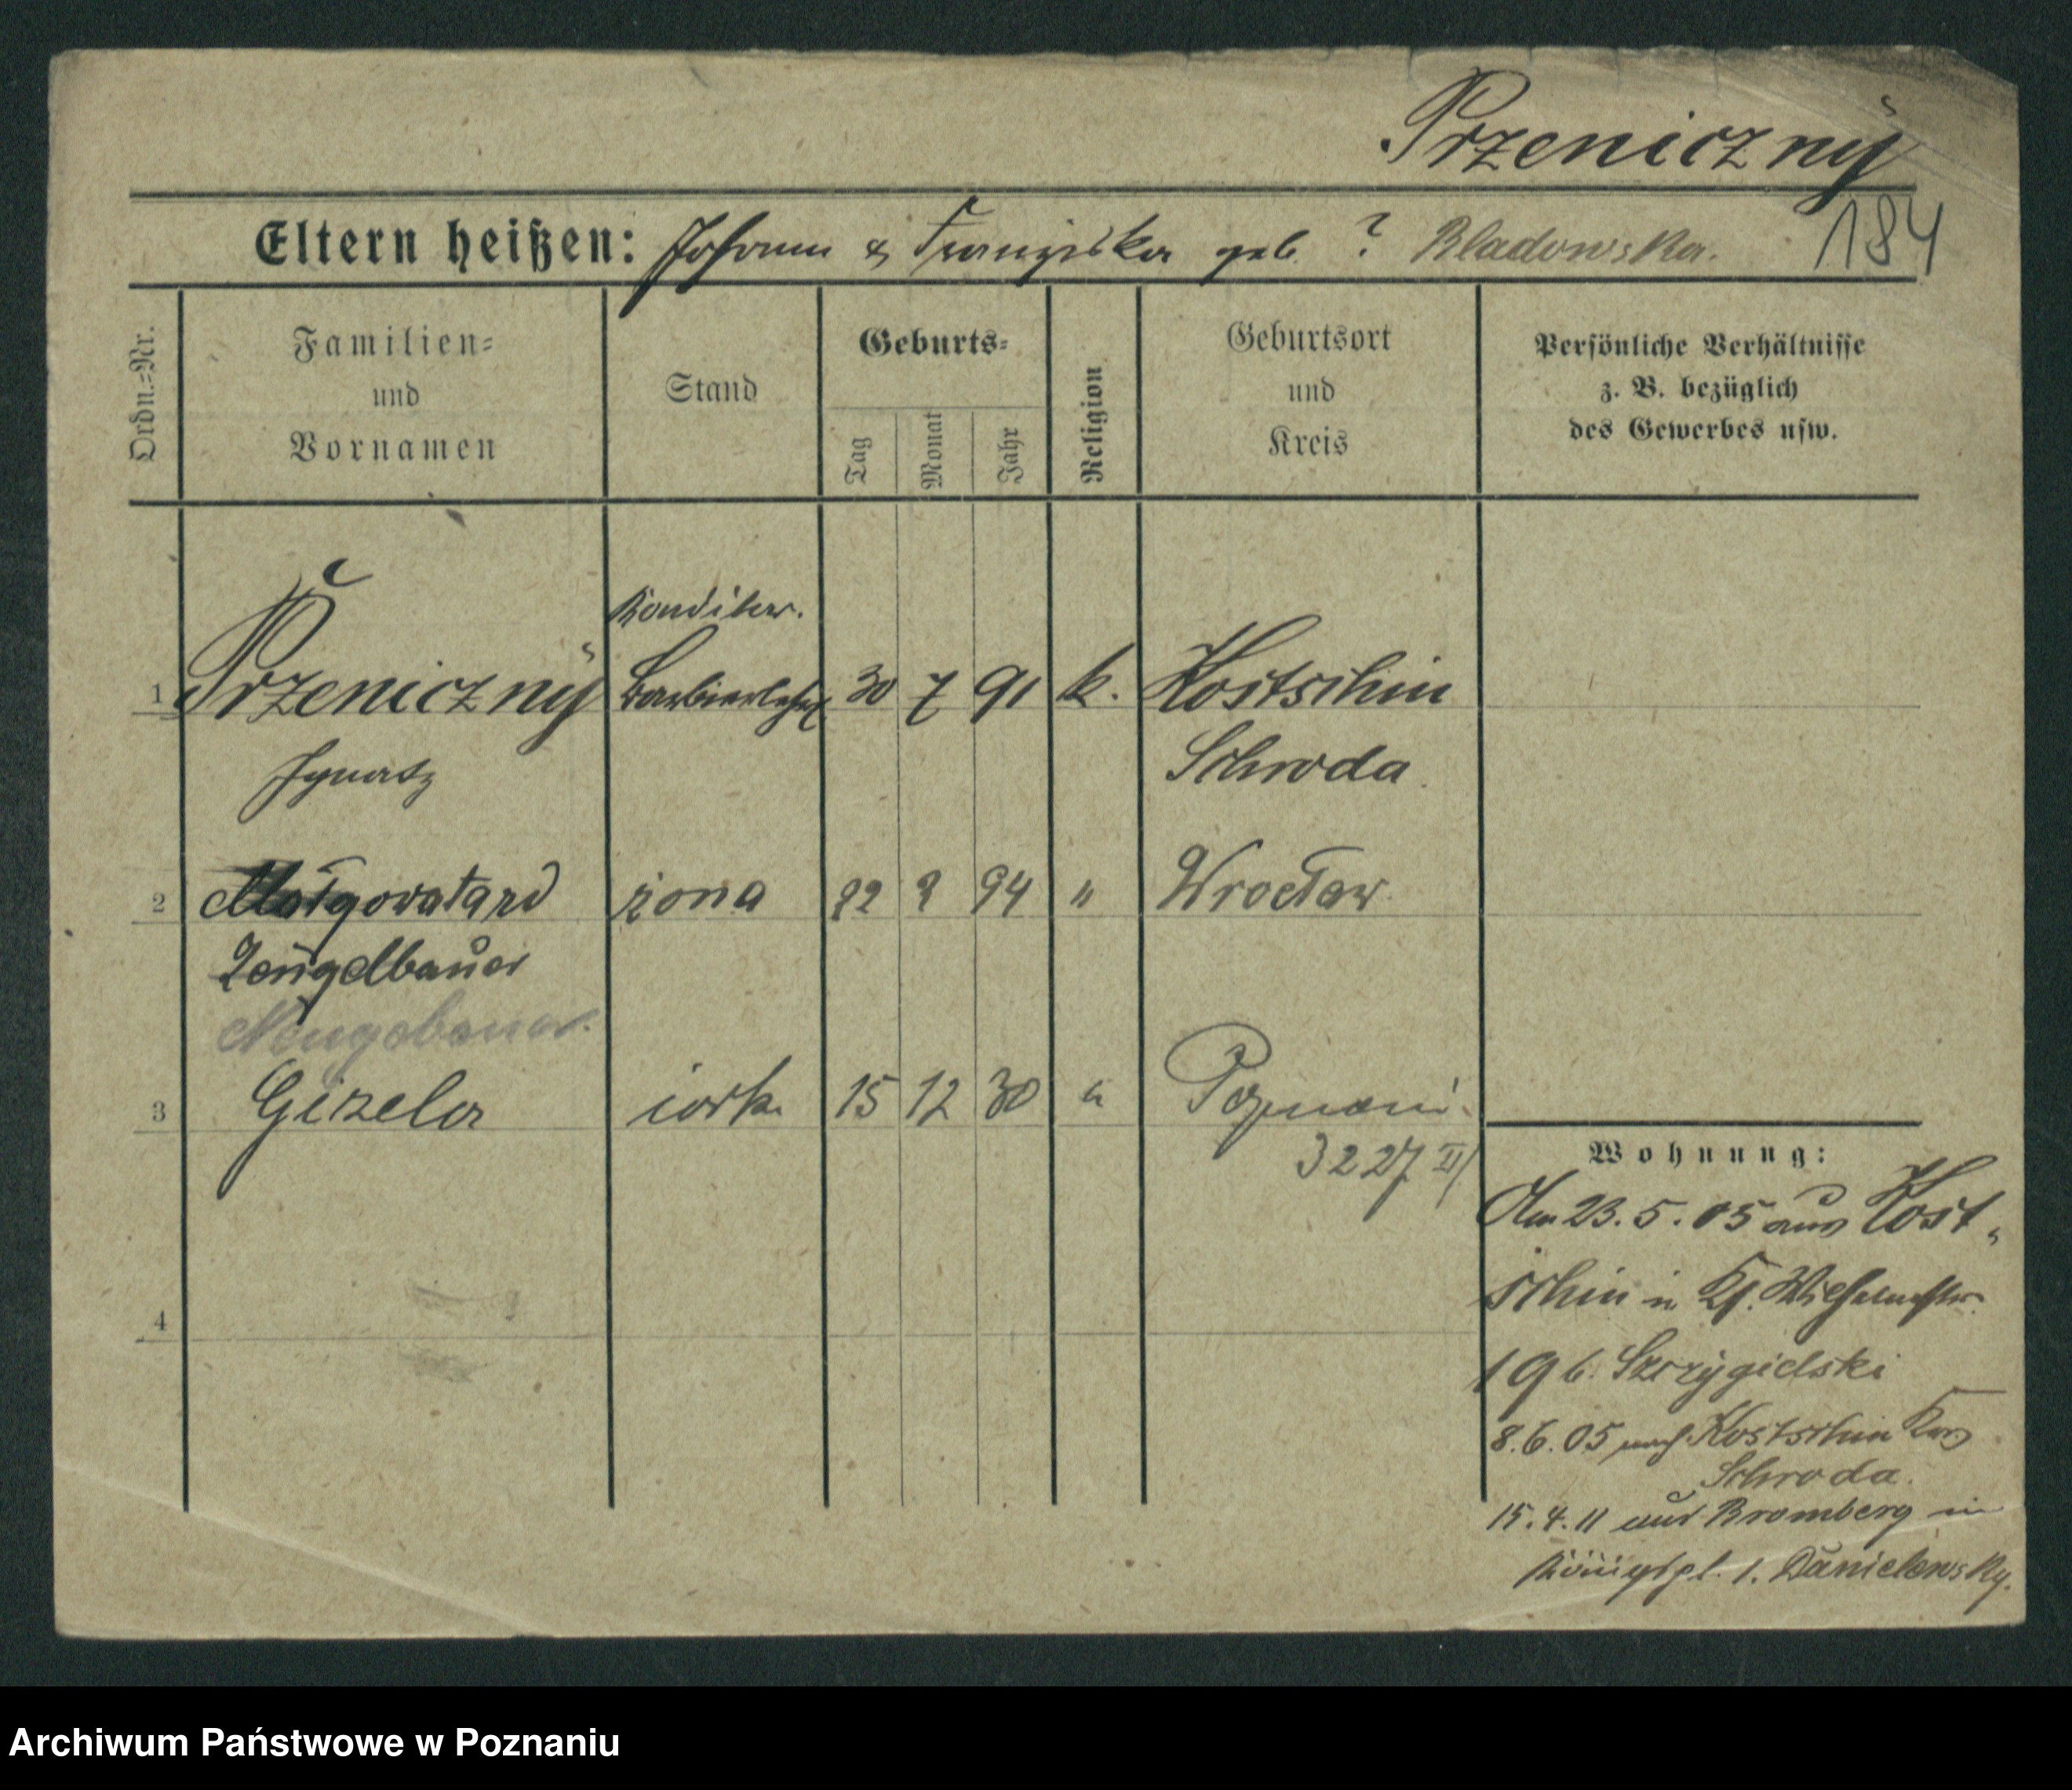 Przeniczny
Eltern heißen: Johann & Franziska geb. ? Bladowska.
184
Ordn.=Nr.
Familien=
und
Vornamen
Stand
Geburts=
Tag
Monat
Jahr
Religion
Geburtsort
und
Kreis
Persönliche Verhältnisse
z. B. bezüglich
des Gewerbes usw.
Konditor.
1 Przeniczny Barbierlehrl 30 7 91 k. Kostschin
Ignatz Schroda
2 żona 22 94 " Wrocław
Neugebauer
3 Gizela córk. 15 12 30 " Poznań
3227 II/
4
Wohnung:
Am 23. 5. 05 aus Kost-
schin in Wilhelmstr.
19 b. Szczygielski
8. 6. 05 nach Kostschin Krs
Schroda.
15. 4. 11 aus Bromberg in
Königspl. 1. Danielewsky.
Archiwum Państwowe w Poznaniu